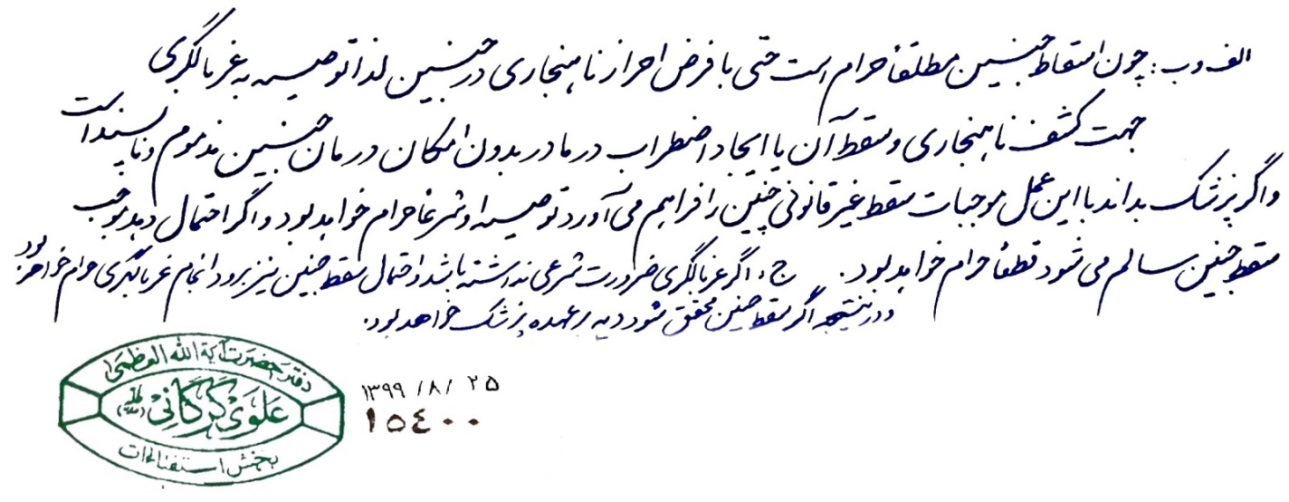 الف و ب: چون اسقاط جنین مطلقاً حرام است حتی با فرض احراز ناهنجاری در جنین لذا توصیه به غربالگری
جهت کشف ناهنجاری و سقط آن یا ایجاد اضطراب در مادر بدون امکان درمان جنین مذموم و ناپسند است
و اگر پزشک بداند با این عمل موجبات سقط غیر قانونی جنین را فراهم می آورد توصیه او شرعاً حرام خواهد بود و اگر احتمال دهد موجب
سقط جنین سالم می شود قطعاً حرام خواهد بود. ج: اگر غربالگری ضرورت شرعی نداشته باشد و احتمال سقط جنین نیز برود انجام غربالگری حرام خواهد بود
و در نتیجه اگر سقط جنین محقق شود دیه بر عهده پزشک خواهد بود.
۱۳۹۹ /۸/ ۲۵
۱۵٤۰۰
دفتر حضرت آیة الله العظمی
علوی گرگانی
بخش استفتائات